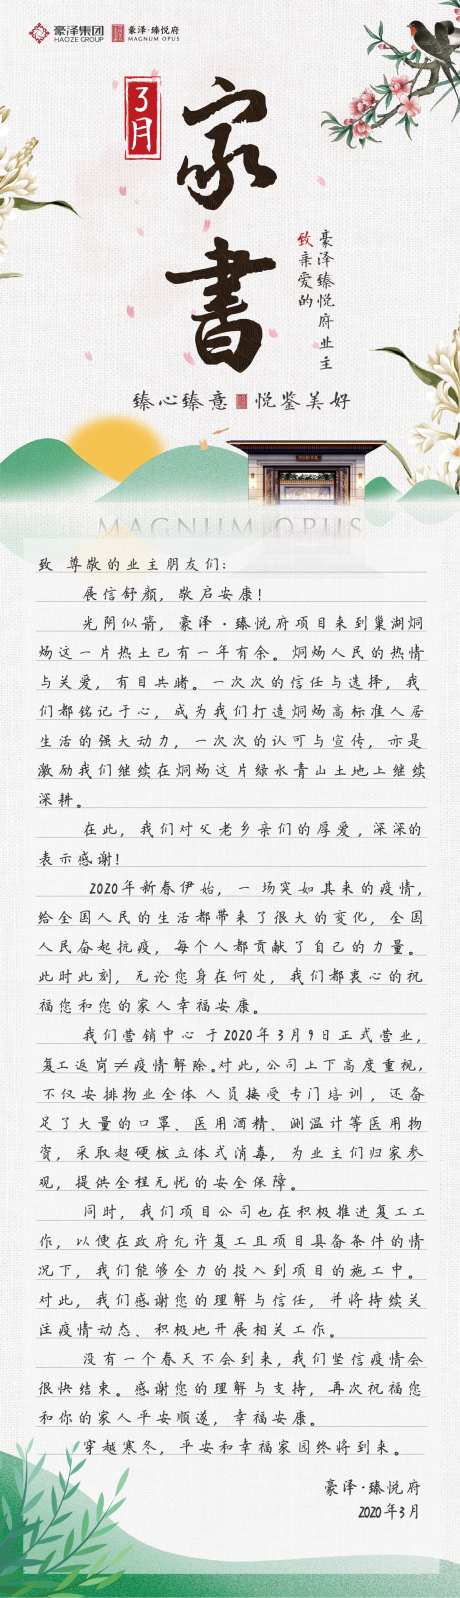 豪泽集团
HAOZE GROUP
豪泽·臻悦府
MAGNUM OPUS
3月
家书
致亲爱的
豪泽臻悦府业主
臻心臻意 悦鉴美好
MAGNUM OPUS
致 尊敬的业主朋友们:
展信舒颜,敬启安康!
光阴似箭,豪泽·臻悦府项目来到巢湖烔
炀这一片热土已有一年有余。烔炀人民的热情
与关爱,有目共睹。一次次的信任与选择,我
们都铭记于心,成为我们打造烔炀高标准人居
生活的强大动力,一次次的认可与宣传,亦是
激励我们继续在烔炀这片绿水青山土地上继续
深耕。
在此,我们对父老乡亲们的厚爱,深深的
表示感谢!
2020年新春伊始,一场突如其来的疫情,
给全国人民的生活都带来了很大的变化,全国
人民奋起抗疫,每个人都贡献了自己的力量。
此时此刻,无论您身在何处,我们都衷心的祝
福您和您的家人幸福安康。
我们营销中心于2020年3月9日正式营业,
复工返岗≠疫情解除。对此,公司上下高度重视,
不仅安排物业全体人员接受专门培训,还备
足了大量的口罩、医用酒精、测温计等医用物
资,采取超硬核立体式消毒,为业主们归家参
观,提供全程无忧的安全保障。
同时,我们项目公司也在积极推进复工工
作,以便在政府允许复工且项目具备条件的情
况下,我们能够全力的投入到项目的施工中。
对此,我们感谢您的理解与信任,并将持续关
注疫情动态、积极地开展相关工作。
没有一个春天不会到来,我们坚信疫情会
很快结束。感谢您的理解与支持,再次祝福您
和你的家人平安顺遂,幸福安康。
穿越寒冬,平安和幸福家园终将到来。
豪泽·臻悦府
2020年3月